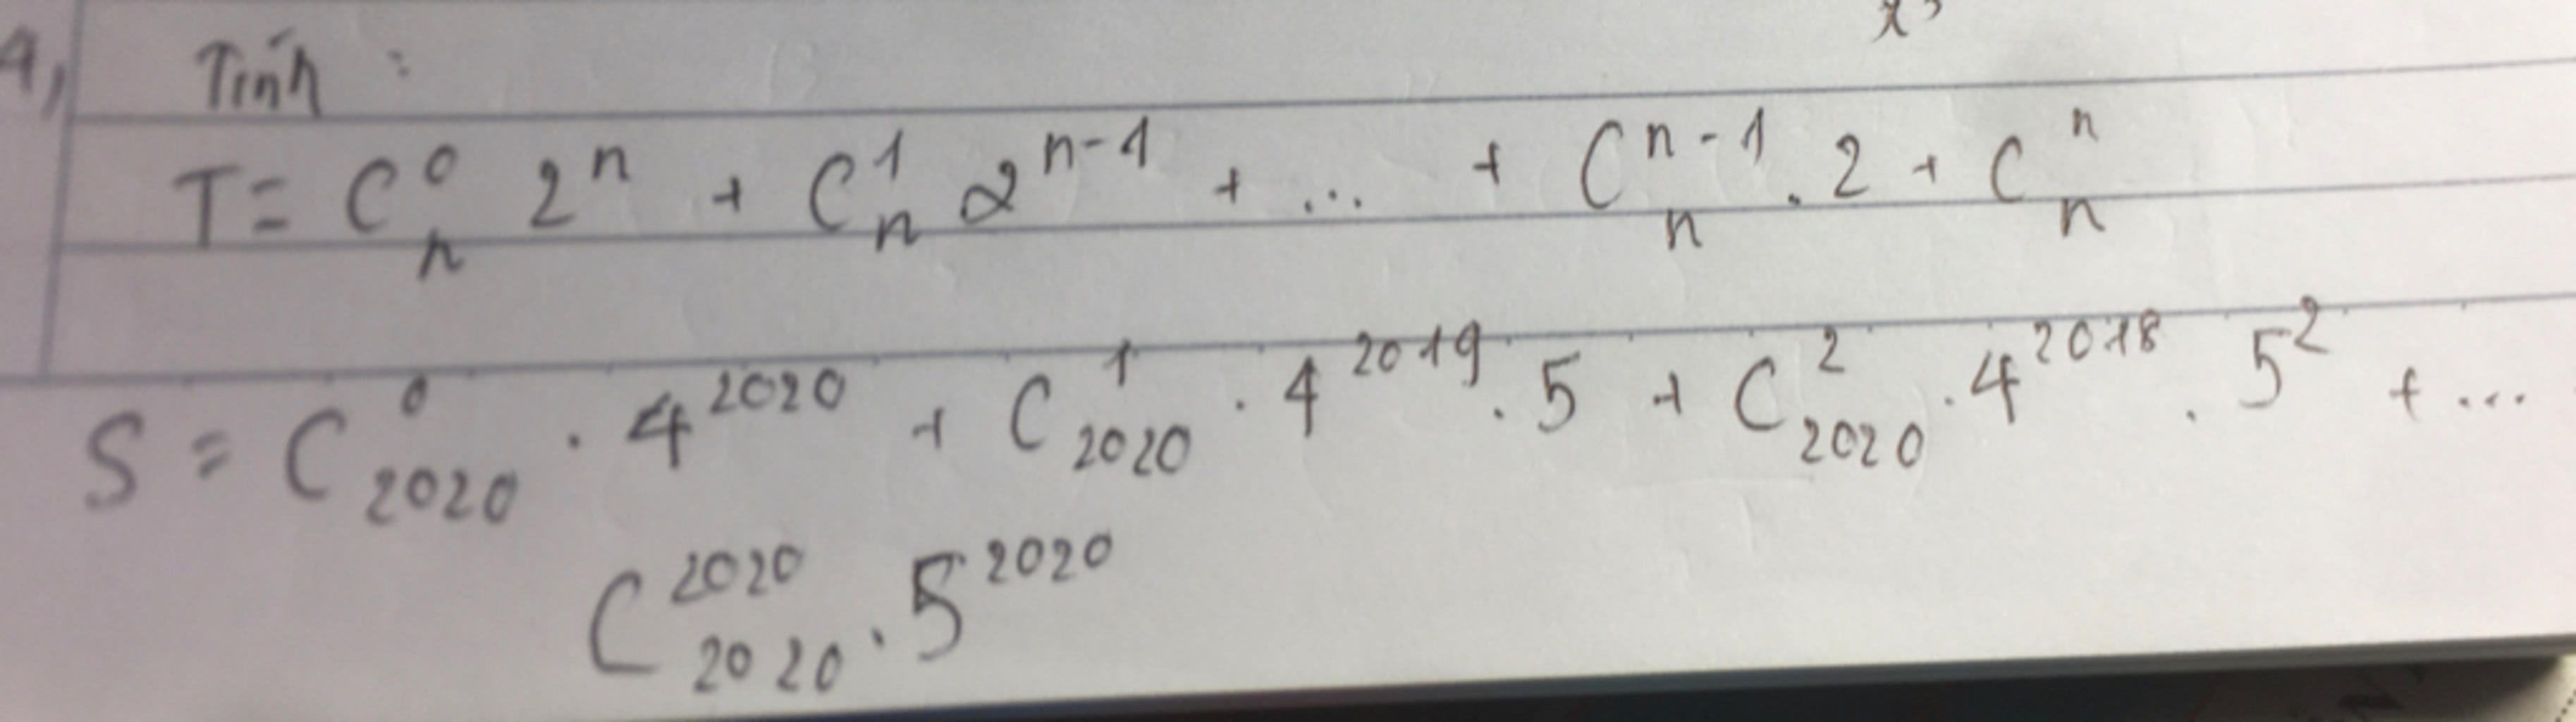 4, Tính :
T = C⁰ₙ 2ⁿ + C¹ₙ 2ⁿ⁻¹ + ... + Cⁿ⁻¹ₙ . 2 + Cⁿₙ
S = C⁰₂₀₂₀ . 4²⁰²⁰ + C¹₂₀₂₀ . 4²⁰¹⁹ . 5 + C²₂₀₂₀ . 4²⁰¹⁸ . 5² + ...
C²⁰²⁰₂₀₂₀ . 5²⁰²⁰